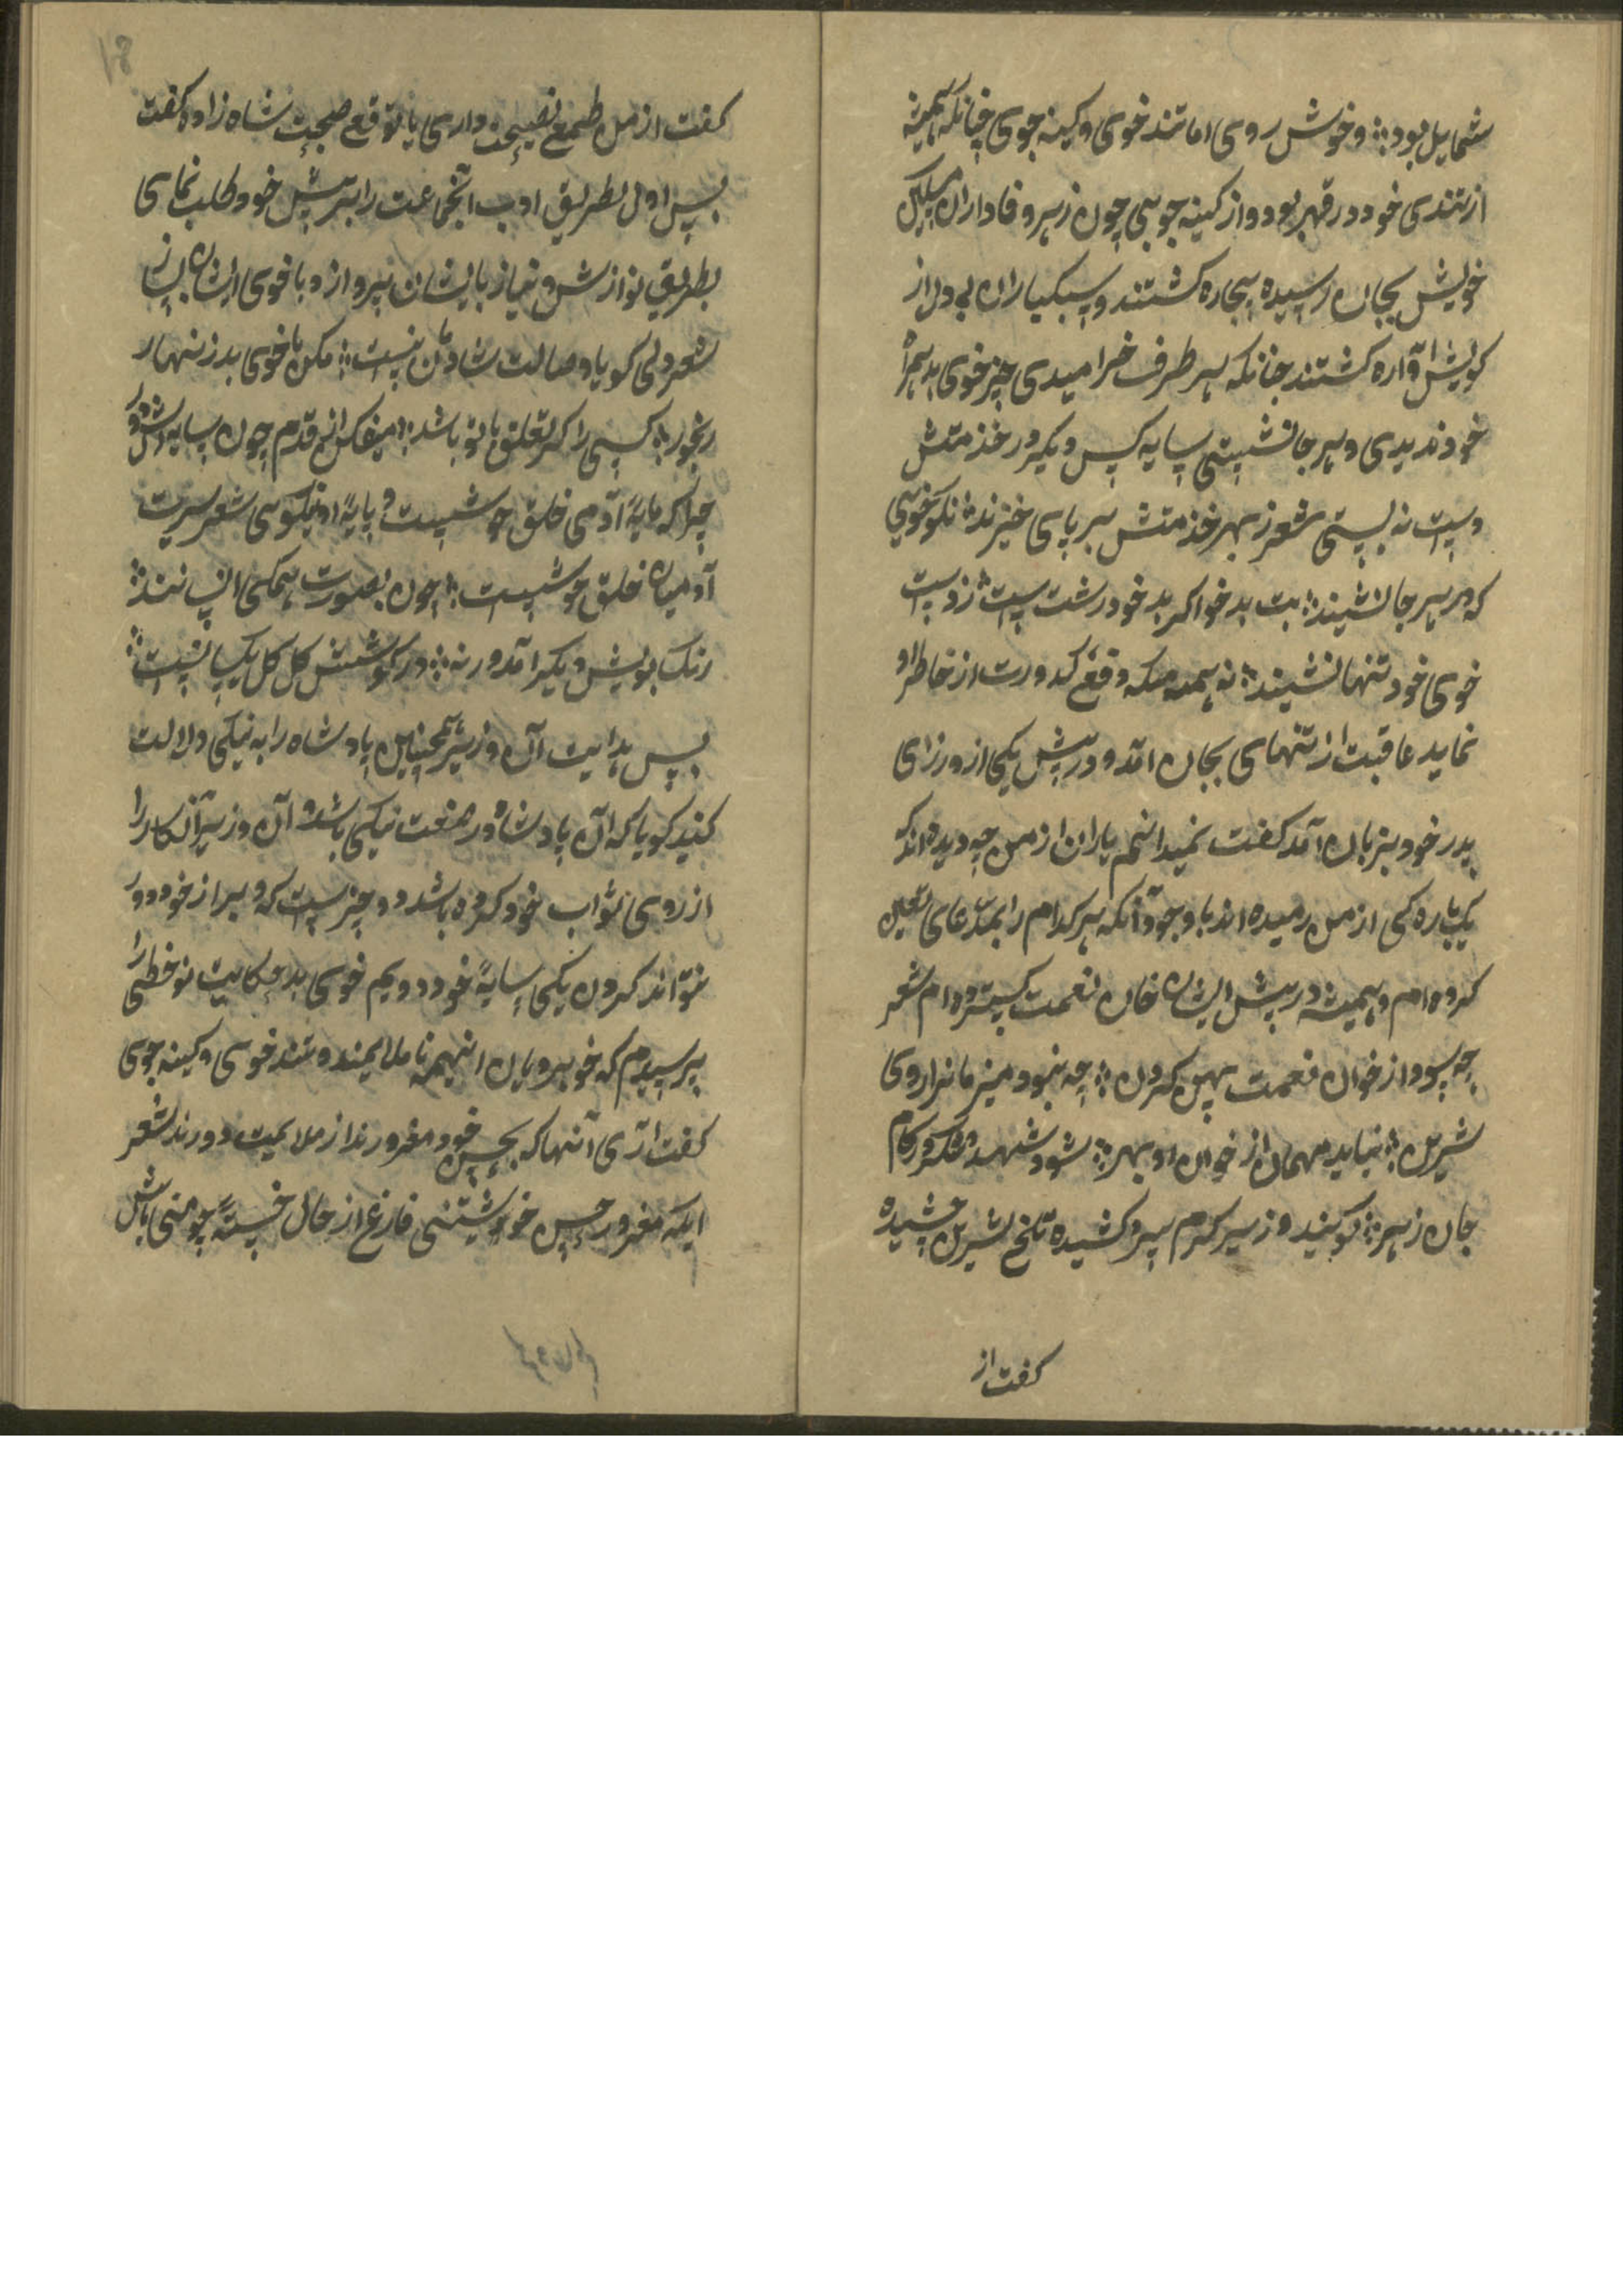 شمایل بود ؞ و خوش روی اما تند خوی و کینه جوی چنانکه همیشه
از تندی خود در قهر بودو از کینه جویی چون زهر و فاداران
خویش بجان رسیده بیچاره کشتند و سبکیاران بی دل از
کویش آواره کشتند چنانکه بهر طرف خرامیدی جز خوی بد همراه
خود ندیدی و بهر جا نشستی سایه کس دیکر در خذمتش
دست نه بستی شعر ز بهر خذمتش بر پای خیزند ؞ نکو خویی
که در هر جا نشیند ؞ بت بد خو اکر بد خود رشت است ؞ ز دست
خوی خود تنها نشیند ؞ نه همدمیکه وقع کدورت از خاطر او
نماید عاقبت از تنهای بجان آمد و در پیش یکی از وزرای
پدر خود بزبان آمد کفت نمیدانم یاران از من چه دیده اند که
یکباره کی از من رمیده اند با وجود آنکه هر کدام را بمدعای تعین
کرده ام و همیشه در پیش ایشان خان نعمت کسترده ام شعر
چه سود از خوان نعمت پهن کردن ؞ چه بنمود میزمانرا روی
شیرین ؞ نیابد مهمان از خوان او بهر ؞ شود شهد و شکر در کام
جان زهر ؞ کویند وزیر کرم سرو کشیده تلخ شیرین چشیده
کفت از
کفت از من طمع نصیحت داری یا توقع صحبت شاه زاده کفت
پس اول بطریق ادب آنجماعت را بر پیش خود طلب نمای
بطریق نوازش و نیاز بایشان پرواز و با خوی ایشان بساز
شعر دلی کو با وصالت شادمان نیست ؞ مکن با خوی بد زنهار
رنجور ؞ کسی را کز تعلق با تو باشد ؞ میفکن از قدم چون سایه اش دور
چرا که مایهٔ آدمی خلق خوشیست و پایهٔ او نیکوی شعر سیرت
آدمیان خلق خوشست ؞ چون بصورت همکی انسانند ؞
رنک بویش دیکر آمد ورنه ؞ در کوشش کل کل یکسانست ؞
پس بدایت آن وزیر همچنین پادشاه را به نیکی دلالت
کنید کویا که آن پادشاه در صنعت نیکی باشد و آن وزیر آن کار را
از روی ثواب خود کرده باشد دو چیزست که دبر از خود دور
نتواند کردن یکی سایهٔ خود دویم خوی بد حکایت نو خطی را
پرسیدم که خوبرویان اینهمه نا ملایمند و تند خوی و کینه جوی
کفت آری آنها که بحسن خود مغرورند از ملایمیت دورند شعر
ایکه مغرور حسن خویشتنی فارغ از حال خستهٔ چو منی باش